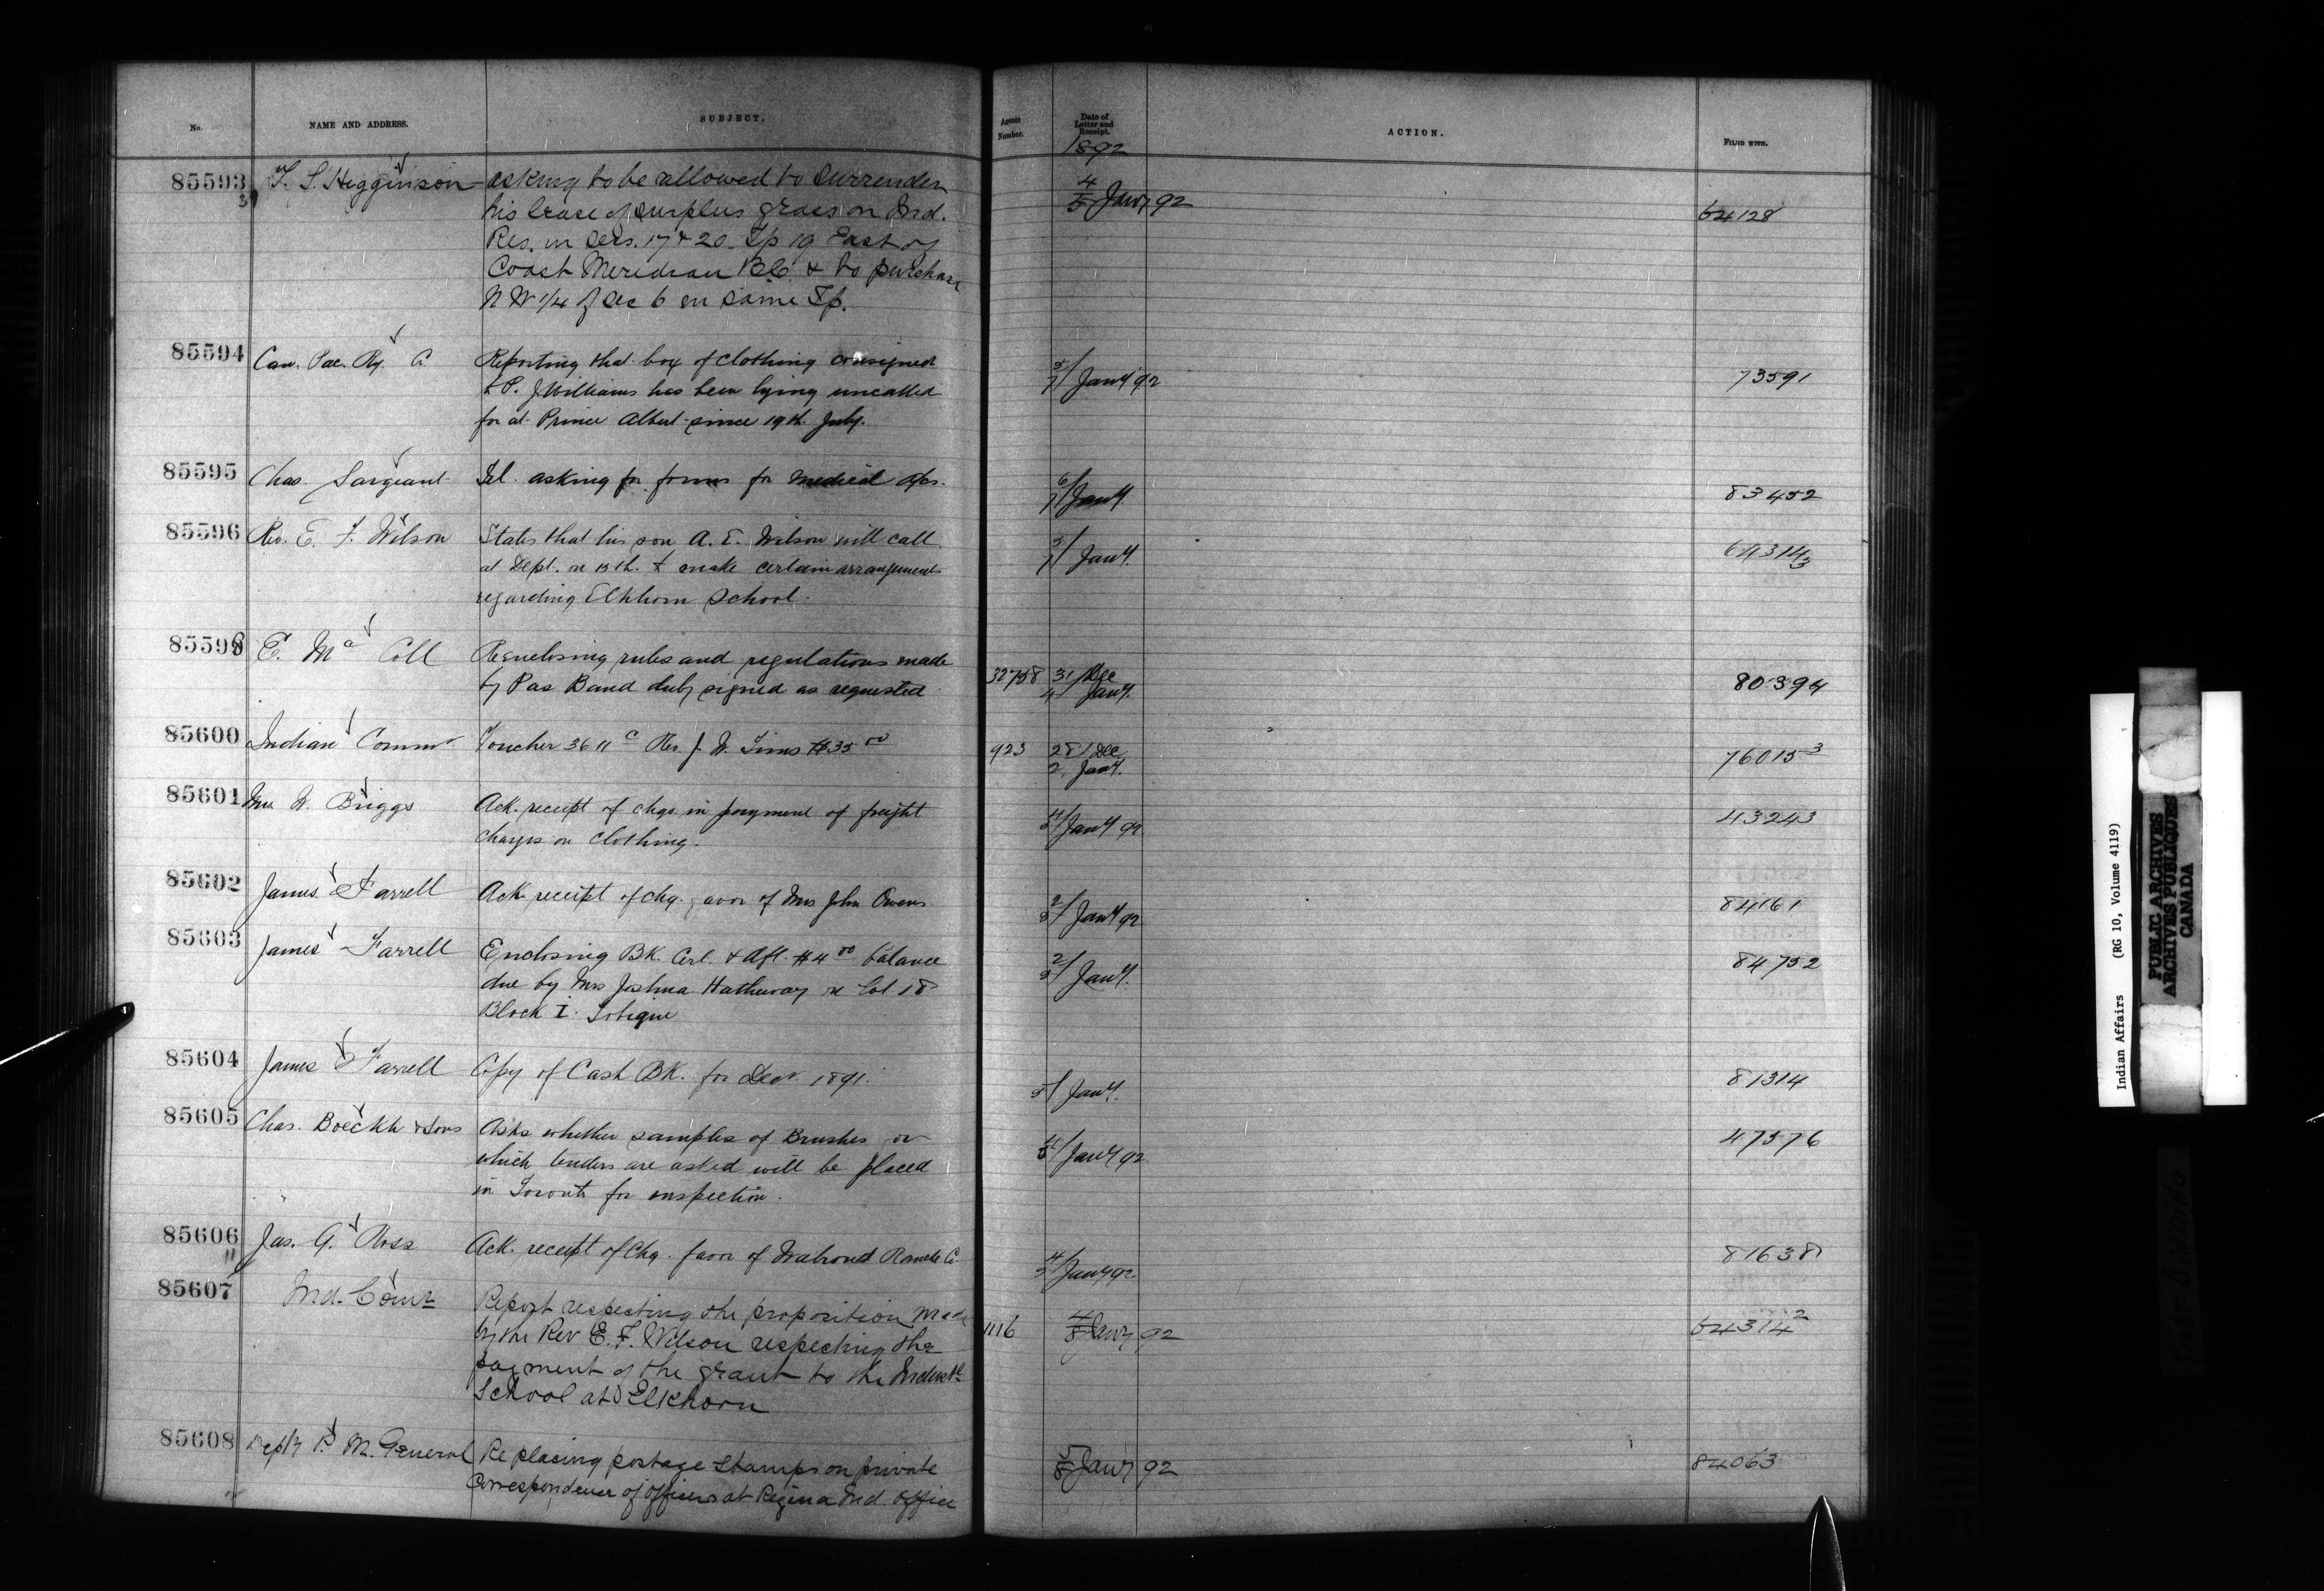 No. NAME AND ADDRESS. SUBJECT. Agents Number. Date of Letter and Receipt. ACTION. FILED WITH.
1892
85593 T. S. Higginson asking to be allowed to surrender
his lease of surplus grass on Ind. 4/5 Jany 92 64128
Res. in Secs. 17 & 20 Tp 19 East of
Coast Meridian B.C. & to purchase
N W 1/4 of Sec 6 in same Tp.
85594 Can. Pac. Ry. Co Reporting that box of clothing consigned
to P. J. Williams has been lying uncalled 5/7 Jany 92 73591
for at Prince Albert since 19th July.
85595 Chas. Sargeant Tel. asking for forms for medical 6/7 Jany. 83452
85596 Rev. E. F. Wilson States that his son A. E. Wilson will call 5/7 Jany. 64314 3
at Dept. on 13th. to make certain arrangements
regarding Elkhorn School.
8559 E. Mc Coll Reenclosing rules and regulations made
by Pas Band duly signed as requested 32758 31/Dec 4/Jany. 80394
85600 Indian Commr Voucher 3611 c Rev. J. W. Tims $35 00 923 28/Dec 2/Jany. 76015 3
85601 Mrs W. Briggs Ack. receipt of chqs in payment of freight
charges on clothing. 4/5 Jany 92 43243
85602 James Farrell Ack. receipt of chq. favor of Mrs John Owens 2/5 Jany 92 84161
85603 James Farrell Enclosing BK. Cert. & Aft. $4 00 balance
due by Mrs Joshua Hathaway re Lot 18 2/5 Jany. 84752
Block I. Tobique
85604 James Farrell Copy of Cash BK. for Decr. 1891. 5/Jany. 81314
85605 Chas. Boeckh & Sons Asks whether samples of Brushes for
which tenders are asked will be placed 4/5 Jany 92 47576
in Toronto for inspection.
85606 Jas. G. Ross Ack. receipt of Chq. favor of Walrond Ranche Co. 4/5 Jany 92 81638
85607 Ind. Comr Report respecting the proposition made
by the Rev E. F. Wilson respecting the 1116 4/8 Jany 92 64314 2
payment of the grant to the Industl
School at Elkhorn
85608 Depty P. M. General Re placing postage stamps on private 5/8 Jany 92 84063
correspondence of officers at Regina Ind. Office
Indian Affairs (RG 10, Volume 4119)
PUBLIC ARCHIVES
ARCHIVES PUBLIQUES
CANADA